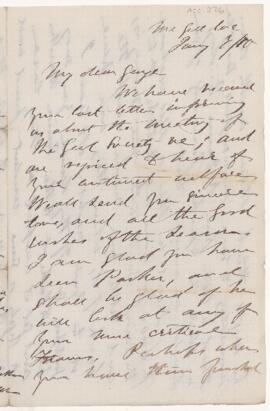 Acc. 276
McGill Coll
Jany 3/80
My dear George
We have received
your last letter informing
us about the meeting of
the Geol Society &c; and
are rejoiced to hear of
your continued welfare
We all send you sincere
love, and all the good
wishes of the season
I am glad you have
seen Parker, and
shall be glad if he
will look at any of
your more critical
Forams. Perhaps when
you have them